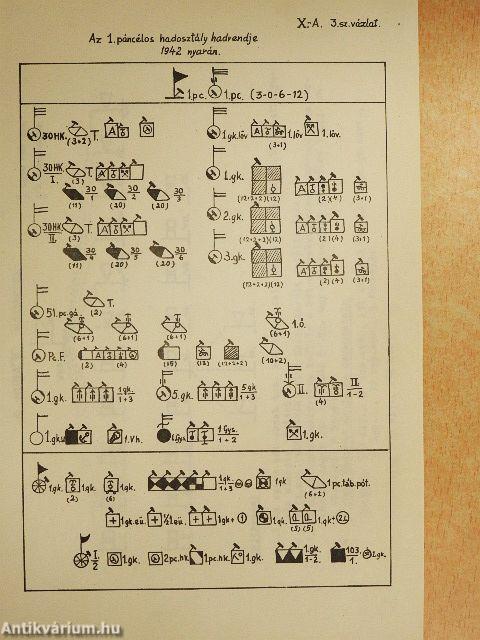 X.-A. 3.sz.vázlat.
Az 1.páncélos hadosztály hadrendje
1942 nyarán.
1.pc. 1.pc. (3-0-6-12)
30HK. T. 1.gk.löv. 1.löv. 1.löv.
(3+2) (3+1)
30HK. I. T. 1.gk.
(3) (12+2+2)(12) (2)(4) (3+1)
30/1 30/2 30/3
(11) (20) (20)
30HK. II. T. 2.gk.
(3) (12+2+2)(12) (2)(4) (3+1)
30/4 30/5 30/6 3.gk.
(11) (20) (20) (12+2+2)(12) (2)(4) (3+1)
51.pc.gá. T.
(2)
(6+1) (6+1) (6+1) (6+1) 1.ö.
Pc.F.
(2) (4) (15) (12+2+2) (10+2)
1.gk. 1.gk 1+3 5.gk. 5.gk 1+3 II. II. 1-2
(4)
1.gku. 1.Vh. 1.Gys. 1.Gys. 1+2 1.gk.
1.gk. 1.gk. 1.gk. 1.gk. 1+3 1.gk 1pc.táb.pót.
(2) (6) (6+2)
1.gk.eü. 1/2.eü. 1.gk+ 1 1.gk. 1.gk+ 22
(5) (5)
I. 2 1.gk. 2.pc.hk. 1.pc.hk. 1.gk. 1.gk. 1-2. 103. 1. 1.gk.
Antikvárium.hu